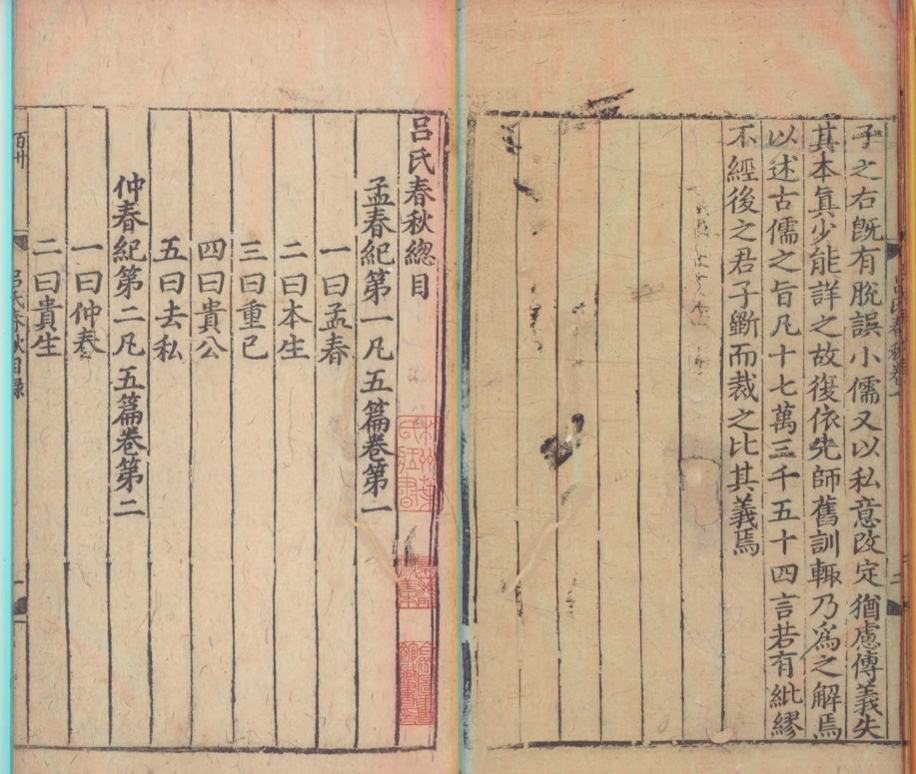 子之右旣有脫誤小儒又以私意改定猶慮傳義失
其本眞少能詳之故復依先師舊訓輒乃爲之解焉
以述古儒之旨凡十七萬三千五十四言若有紕繆
不經後之君子斷而裁之比其義焉
呂氏春秋總目
孟春紀第一凡五篇卷第一
一曰孟春
二曰本生
三曰重已
四曰貴公
五曰去私
仲春紀第二凡五篇卷第二
一曰仲春
二曰貴生
百卅
呂氏春秋目錄